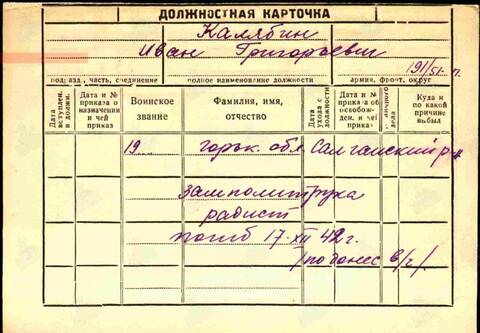 ДОЛЖНОСТНАЯ КАРТОЧКА
Калябин
Иван Григорьевич
191/51
подразд., часть, соединение полное наименование должности армия, фронт, округ
Дата вступлен. в должн. Дата и № приказа о назначении и чей приказ Воинское звание Фамилия, имя, отчество Дата ухода с должности Дата и № приказа об освобожден. и чей приказ № личного дела Куда и по какой причине выбыл
19 горьк. обл. Салганский р-н
замполитрука
радист
погиб 17.XII 42 г.
/по донес в/ч/.